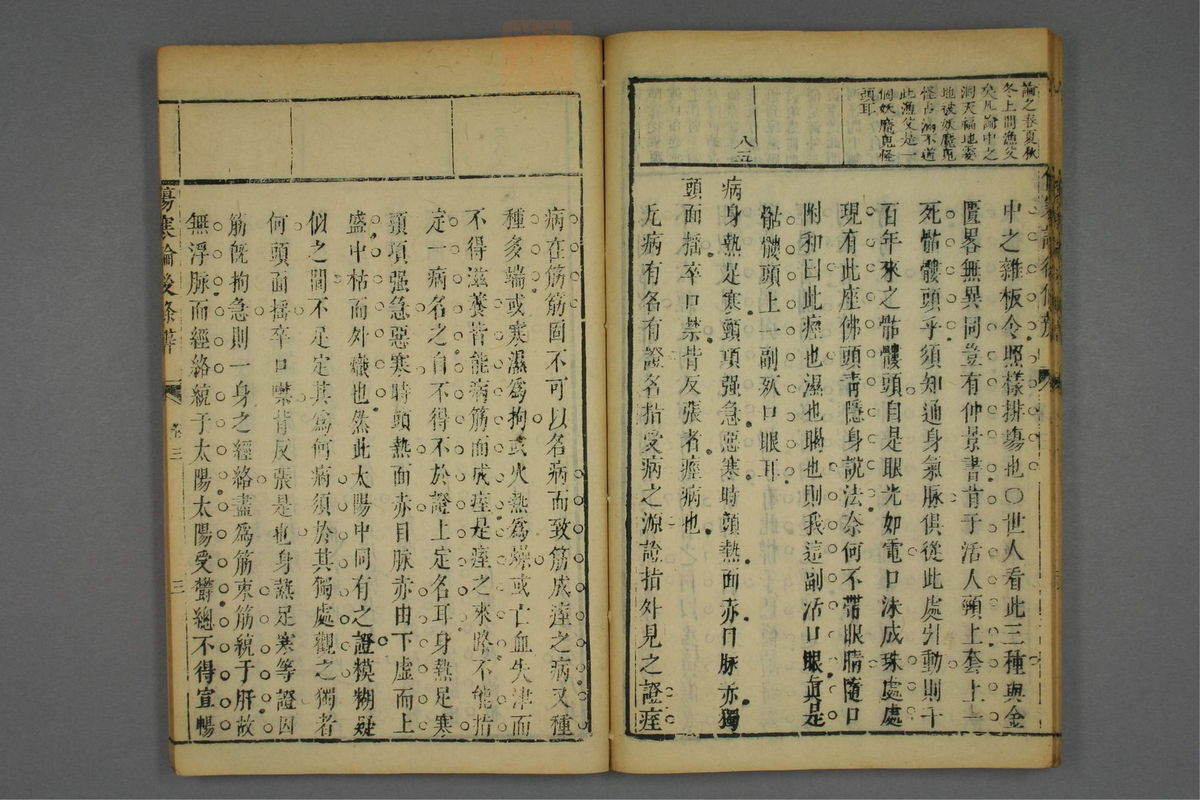 論之春夏秋
冬上問漁父
矣凡論中之
洞天福地要
地被妖魔鬼
怪占滿不道
此漁父是一
個妖魔鬼怪
頭耳
八五
中之雜板令照樣排塲也〇世人看此三種與金
匱畧無異同豈有仲景書肯于活人頸上套上一
死骷髏頭乎須知通身氣脉俱從此處引動則千
百年來之骷髏頭自是眼光如電口沫成珠處處
現有此座佛頭靑隱身說法奈何不帶眼睛隨口
附和曰此痙也濕也暍也則我這副活口眼眞是
骷髏頭上一副死口眼耳
病身熱足寒頸項强急惡寒時頭熱面赤目脉赤獨
頭面搖卒口禁背反張者痙病也
凢病有名有證名指受病之源證指外見之證痙
病在筋筋固不可以名病而致筋成痙之病又種
種多端或寒濕爲拘或火熱爲燥或亡血失津而
不得滋養皆能病筋而成痙是痙之來路不能指
定一病名之自不得不於證上定名耳身熱足寒
頸項强急惡寒時頭熱面赤目脉赤由下虛而上
盛中枯而外熾也然此太陽中同有之證模糊疑
似之間不足定其爲何病須於其獨處觀之獨者
何頭面搖卒口噤背反張是也身熱足寒等證因
筋旣拘急則一身之經絡盡爲筋束筋統于肝故
無浮脉而經絡統于太陽太陽受鬱總不得宣暢
傷寒論後條辨
卷三
三